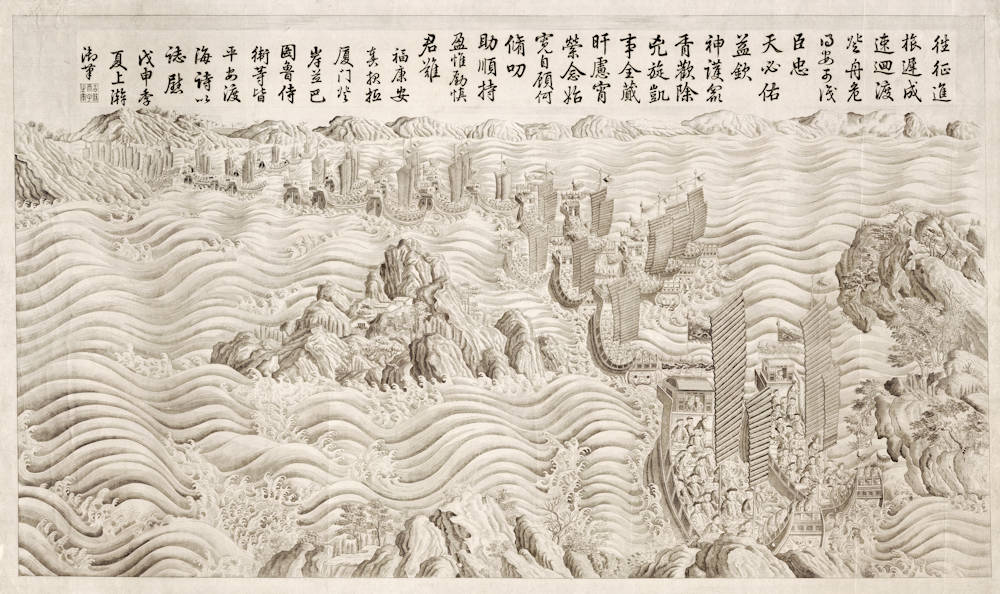 往征進
旅遲成
速迴渡
登舟危
得安可
臣忠
天必佑
益欽
神護衆
胥歡除
兇旋凱
事全蕆
旰慮宵
縈念始
寬自顧何
脩叨
助順持
盈惟勵慎
君難
福康安
奏報於
廈门登
岸並巴
圖魯侍
衛等皆
平安渡
海詩以
誌慰
戊申季
夏上澣
御筆